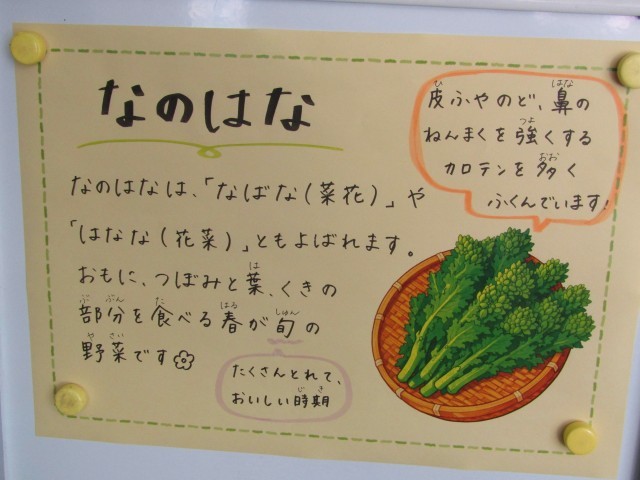 なのはな
皮ふやのど、鼻の
ねんまくを強くする
カロテンを多く
ふくんでいます!
なのはなは、「なばな(菜花)」や
「はなな(花菜)」ともよばれます。
おもに、つぼみと葉、くきの
部分を食べる春が旬の
野菜です
たくさんとれて、
おいしい時期